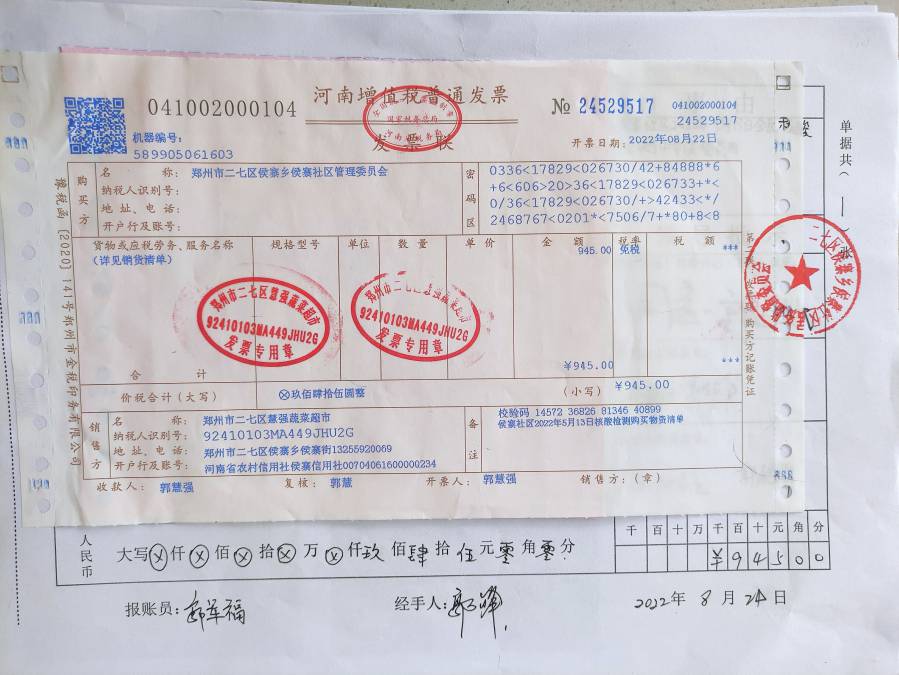 041002000104
河南增值税普通发票
发票联
№ 24529517
041002000104
24529517
机器编号:
589905061603
开票日期: 2022年08月22日
购买方
名 称: 郑州市二七区侯寨乡侯寨社区管理委员会
纳税人识别号:
地 址、电 话:
开户行及账号:
密码区
0336<17829<026730/42+84888*6
+6<606>20>36<17829<026733+*<
0/36<17829<026730/+>42433<*/
2468767<0201*<7506/7+*80+8<8
货物或应税劳务、服务名称 规格型号 单位 数 量 单 价 金 额 税率 税 额
(详见销货清单) 945.00 免税 ***
郑州市二七区慧强蔬菜超市
92410103MA449JHU2G
发票专用章
92410103MA449JHU2G
发票专用章
合 计 ¥945.00 ***
价税合计(大写) ⓧ玖佰肆拾伍圆整 (小写) ¥945.00
销售方
名 称: 郑州市二七区慧强蔬菜超市
纳税人识别号: 92410103MA449JHU2G
地 址、电 话: 郑州市二七区侯寨乡侯寨街13255920069
开户行及账号: 河南省农村信用社侯寨信用社00704061600000234
备注
校验码 14572 36826 81346 40899
侯寨社区2022年5月13日核酸检测购买物资清单
收款人: 郭慧强 复核: 郭慧 开票人: 郭慧强 销售方:(章)
豫税函〔2020〕141号郑州市金税印务有限公司
购买方记账凭证
单据共(一)张
千 百 十 万 千 百 十 元 角 分
¥ 9 4 5 0 0
人民币
大写ⓧ仟ⓧ佰ⓧ拾ⓧ万ⓧ仟玖佰肆拾伍元零角零分
报账员: 郭军福 经手人: 2022年 8 月 24 日